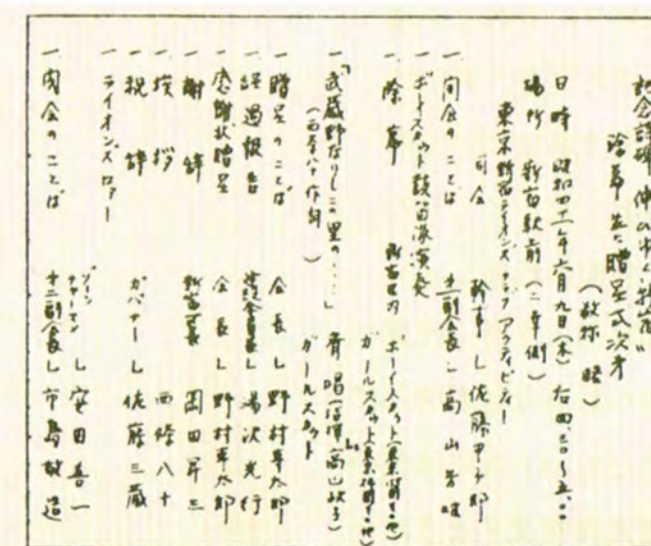 記念詩碑 伸びゆく新宿
除幕並に贈呈式次才
（敬称略）
日時 昭和四十一年六月九日(木) 右四、三〇～五、〇〇
場所 新宿駅前（二幸側）
東京新宿ライオンズクラブアクティビティー
司会 幹事 L 佐藤甲子郎
一 開会のことば 才一副会長 L 高山芳雄
一 ボーイスカウト鼓笛隊演奏
一 除幕 新宿区内 ボーイスカウト
ガールスカウト
一 「武蔵野なりしこの里の・・・」 斉唱
（西条八十作詞） ガールスカウト
一 贈呈のことば 会長 L 野村専太郎
一 経過報告 L 湯沢光行
一 感謝状贈呈 会長 L 野村専太郎
一 謝辞 新宿区長 岡田昇三
一 挨拶 西條八十
一 祝辞 ガバナー L 佐藤三蔵
一 ライオンズロアー L 安田善一
一 閉会のことば 才二副会長 L 市島敏造